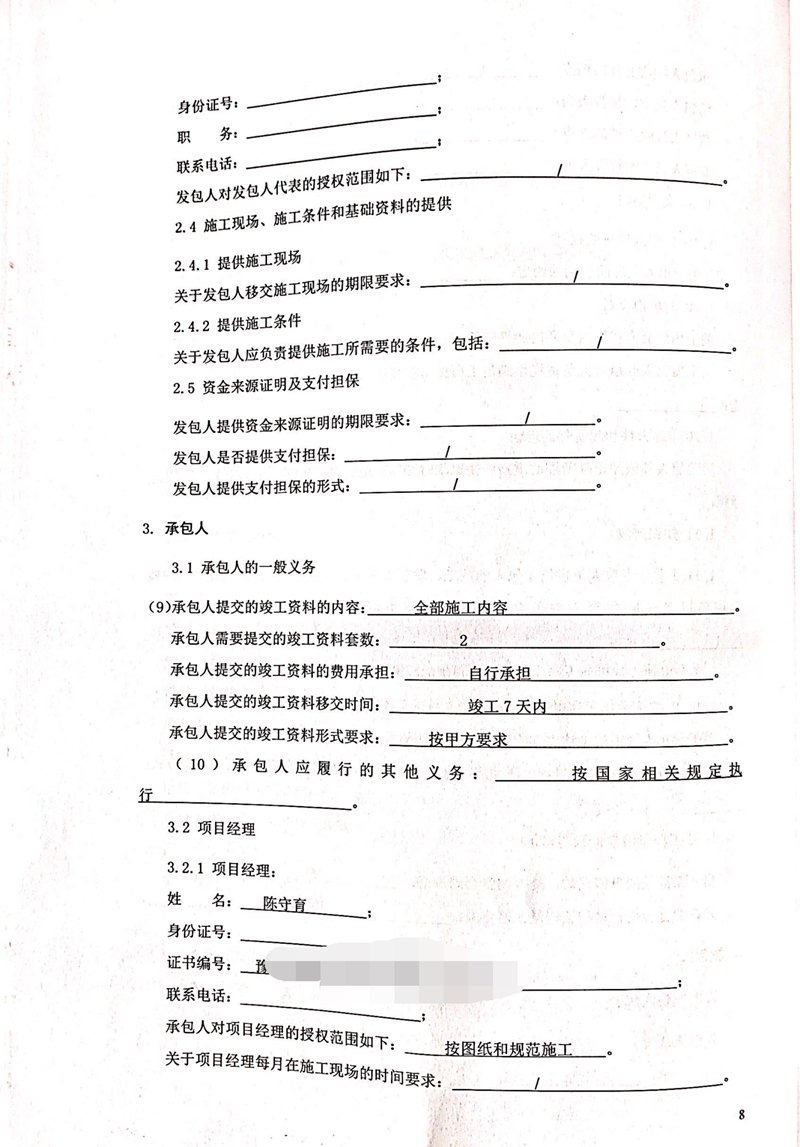 身份证号：；
职　　务：；
联系电话：；
发包人对发包人代表的授权范围如下：/。
2.4 施工现场、施工条件和基础资料的提供
2.4.1 提供施工现场
关于发包人移交施工现场的期限要求：/。
2.4.2 提供施工条件
关于发包人应负责提供施工所需要的条件，包括：/。
2.5 资金来源证明及支付担保
发包人提供资金来源证明的期限要求：/。
发包人是否提供支付担保：/。
发包人提供支付担保的形式：/。
3. 承包人
3.1 承包人的一般义务
（9）承包人提交的竣工资料的内容：全部施工内容。
承包人需要提交的竣工资料套数：2。
承包人提交的竣工资料的费用承担：自行承担。
承包人提交的竣工资料移交时间：竣工7天内。
承包人提交的竣工资料形式要求：按甲方要求。
（10）承包人应履行的其他义务：按国家相关规定执
行。
3.2 项目经理
3.2.1 项目经理：
姓　　名：陈守育；
身份证号：
证书编号：豫；
联系电话：；
承包人对项目经理的授权范围如下：按图纸和规范施工。
关于项目经理每月在施工现场的时间要求：/。
8